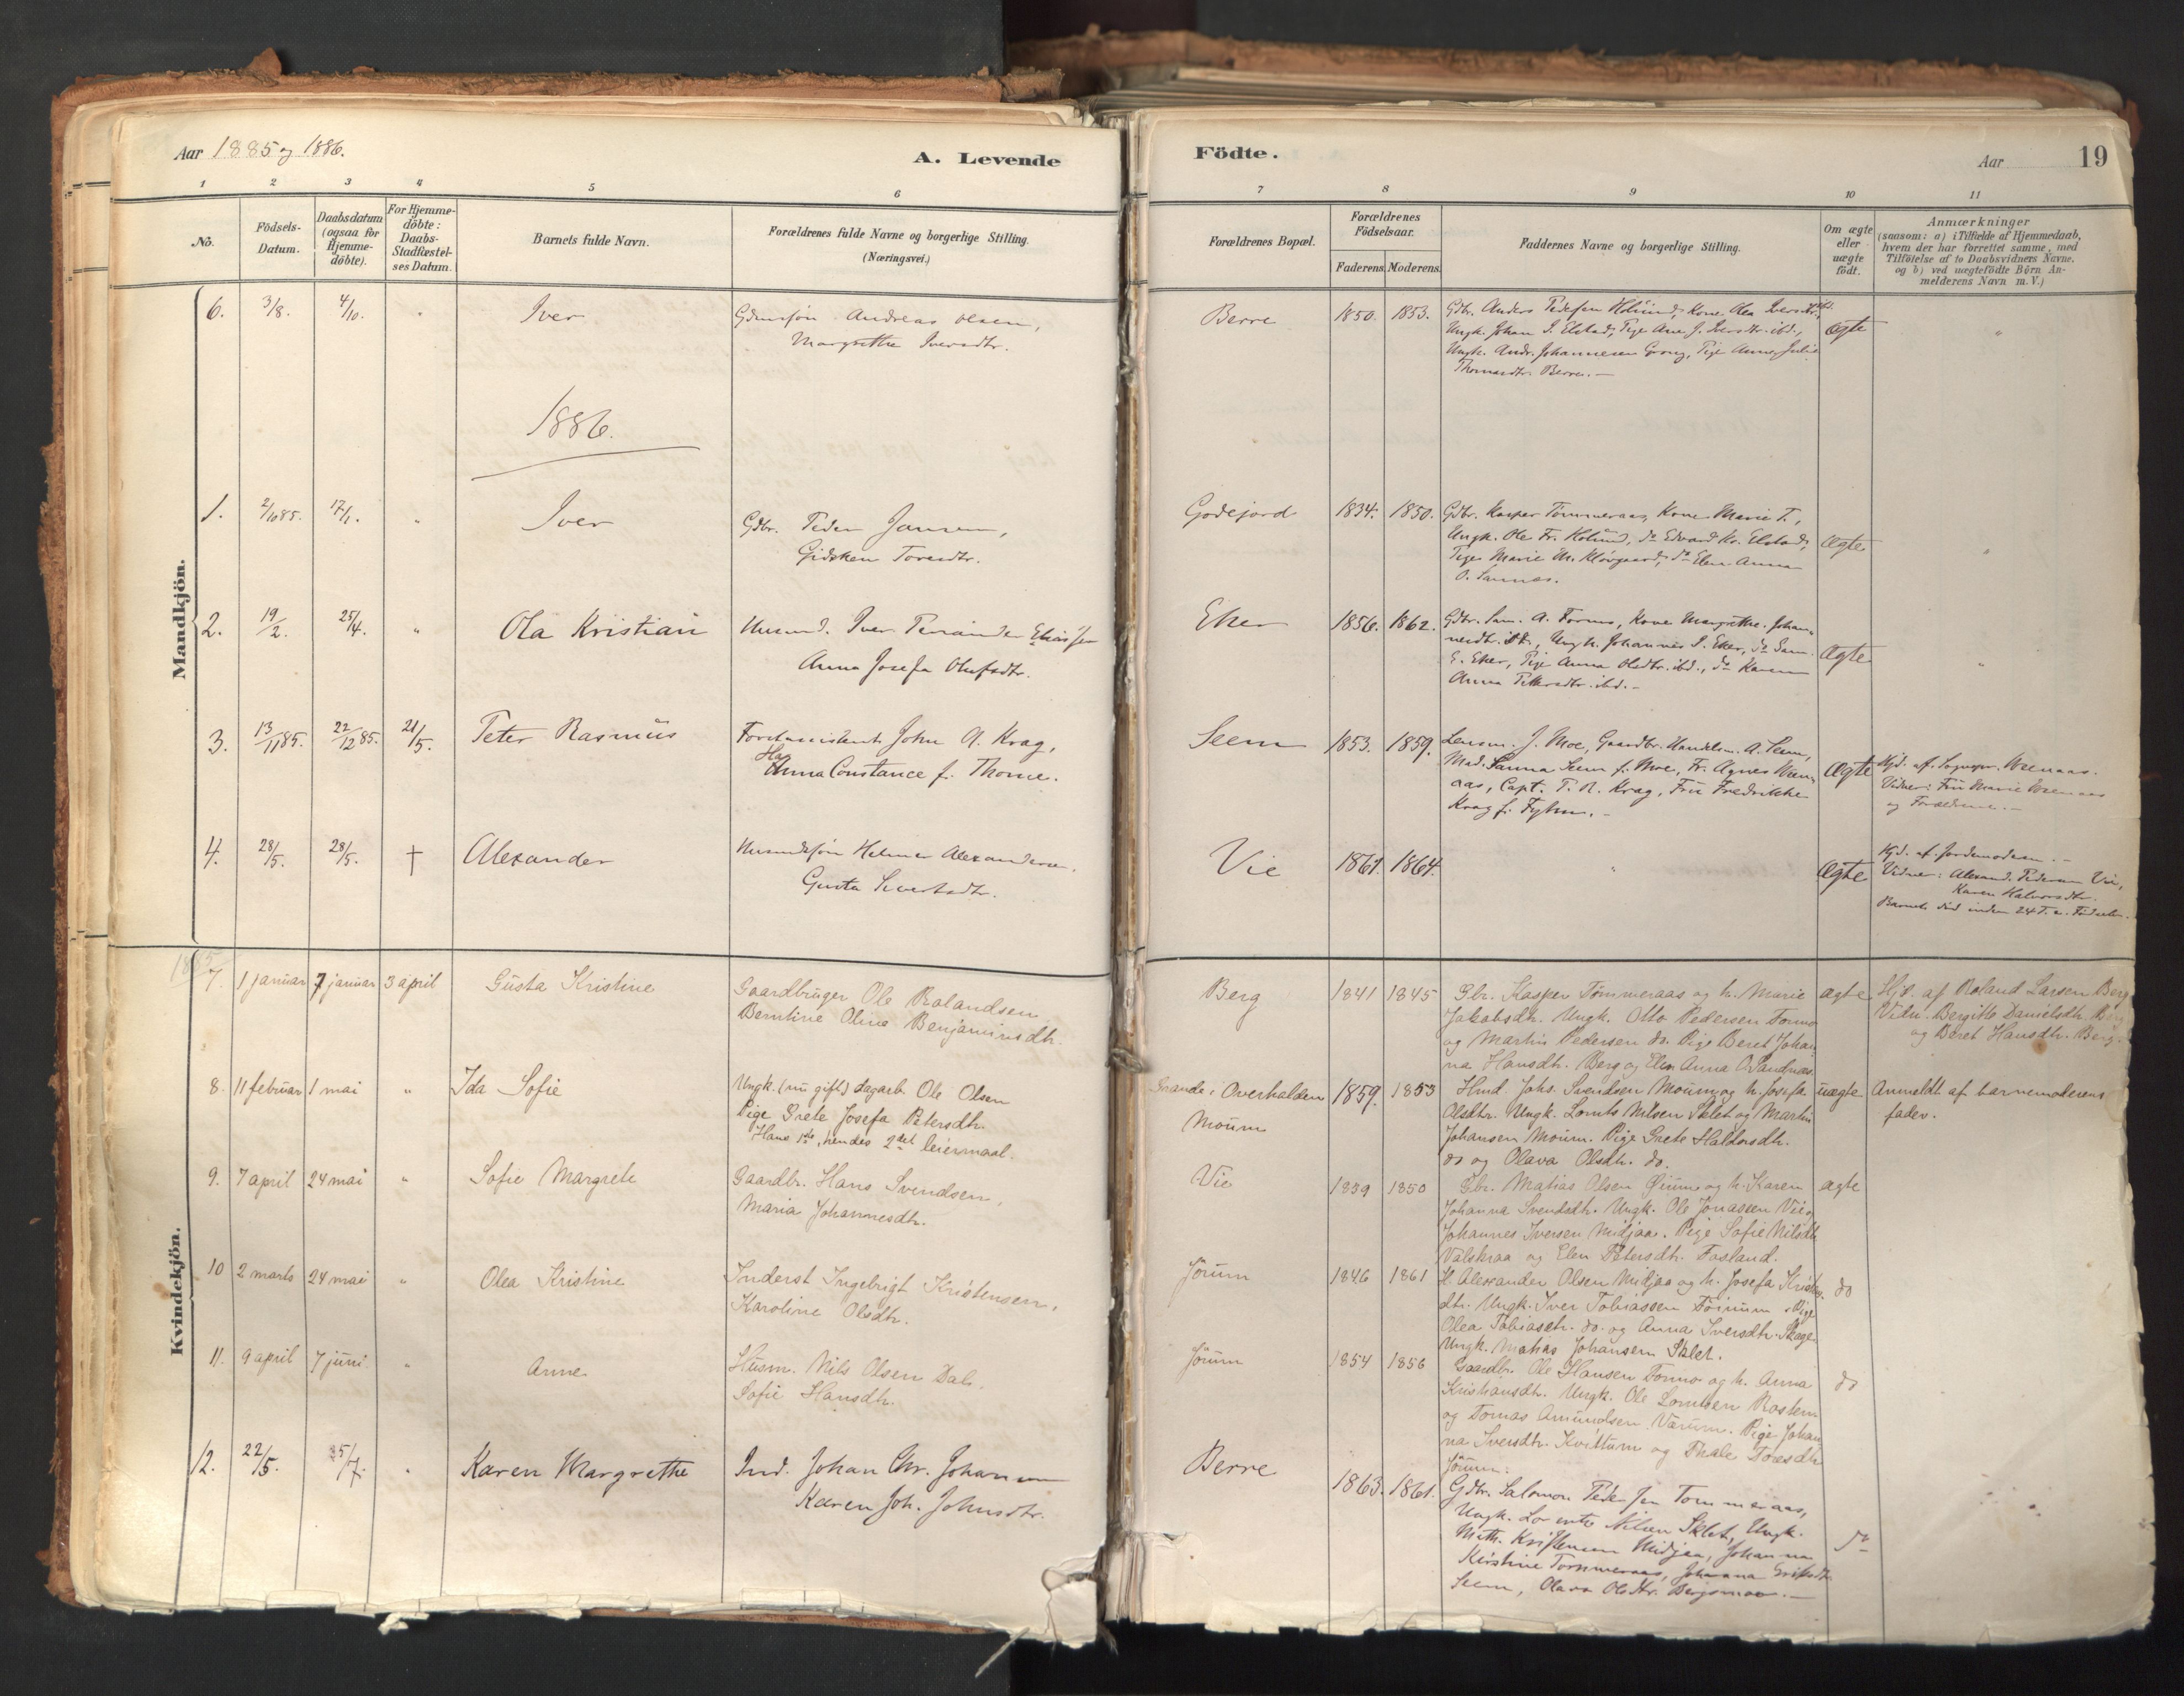 Aar 1885 og 1886.
A. Levende
Födte.
Aar
19
1 2 3 4 5 6 7 8 9 10 11
No.
Födsels-
Datum.
Daabsdatum
(ogsaa for
Hjemme-
döbte).
For Hjemme-
döbte:
Daabs-
Stadfæstel-
ses Datum.
Barnets fulde Navn.
Forældrenes fulde Navne og borgerlige Stilling.
(Næringsvei.)
Forældrenes Bopæl.
Forældrenes
Födselsaar.
Faderens. Moderens.
Faddernes Navne og borgerlige Stilling.
Om ægte
eller
uægte
födt.
Anmærkninger
(saasom: a) i Tilfælde af Hjemmedaab,
hvem der har forrettet samme, med
Tilföielse af to Daabsvidners Navne,
og b) ved uægtefödte Börn An-
melderens Navn m. V.)
Mandkjön.
6. 3/8. 4/10. " Iver
Andreas Olsen,
Margrethe Iversdtr.
Berre 1850. 1853.
Gdbr. Anders Pedersen Kone Olea
Ungk. Johan I. Elstad, Pige Ane J. Iversdtr. ibd.,
Ungk. Andr. Johannesen Grong, Pige Anne Julie
Thomasdtr. Berre. —
Ægte "
1886.
1. 2/10 85. 17/1. " Iver
Gdbr. Peder Jansen,
Gidsken Toresdtr.
Godejord 1834. 1850.
Gdbr. Kasper Tömmeraas, Kone Marie T.,
Ungk. Ole Fr. do Edvard Kr. Elstad,
Pige Marie M. do Elen Anna
O. Sannes.
Ægte "
2. 19/2. 25/4. " Ola Kristian
Husmd. Iver Eliassen
Anna Josefa Olufsdtr.
Eker 1856. 1862.
Gdbr. Sam. A. Formo, Kone Margrethe Johan-
nesdtr. ibd., Ungk. Johannes S. Eker, do Sam.
E. Eker, Pige Anna Olsdtr. ibd., do Karen
Anna Pettersdtr. ibd. —
Ægte "
3. 13/11 85. 22/12 85. 21/5. Peter Rasmus
Forstassistent John A. Krag,
Anna Constance f. Thorne.
Seem 1853. 1859.
Lensm. J. Moe, Gaardbr. Handelsm. A. Seem,
Mad. Sanna Seem f. Moe, Fr. Agnes
aas, Capt. P. R. Krag, Fru Fredrikke
Krag f. —
Ægte
Hjd. af Sognepr.
Vidner: Fru Marie
og Forældrene. —
4. 28/5. 28/5. † Alexander
Husmdsøn Helmer Alexandersen,
Gusta Sivertsdtr.
Vie 1861. 1864. "
Ægte
Hjd. af Jordemoderen. —
Vidner: Alexand. Pedersen Vie,
Karen Halvorsdtr.
Barnet død inden 24 T. e. Födselen.
1885
Kvindekjön.
7. 1 januar 7 januar 3 april Gusta Kristine
Gaardbruger Ole Rolandsen
Berntine Oline Benjaminsdh.
Berg 1841 1845
Gbr. Kasper Tömmeraas og h. Marie
Jakobsdh. Ungk. Otto Pedersen Formo
og Martin Pedersen do. Pige Beret Johan-
na Hansdh. Berg og Elen Anna O. Sandnes.
ægte
Hjd. af Roland Larsen Berg
Vidn. Bergitte Danielsdh. Berg
og Beret Hansdh. Berg.
8. 11 februar 1 mai " Ida Sofie
Ungk. (nu gift) dagarb. Ole Olsen
Pige Grete Josefa Petersdh.
Hans 1ste, hendes 2det leiermaal.
Grande i Overhalden
Moum
1859. 1853
Hmd. Johs. Svendsen Moum og h. Josefa
Olsdtr. Ungk. Lornts Nilsen Sklet og Martin
Johansen Moum. Pige Grete Haldorsdh.
do og Olava Olsdh. do.
uægte
Anmeldt af barnemoderens
fader.
9. 7 april 24 mai " Sofie Margrete
Gaardbr. Hans Svendsen,
Maria Johannesdh.
Vie 1839 1850
Gbr. Matias Olsen Öium og h. Karen
Johanna Svendsdh. Ungk. Ole Jonassen Vie,
Johannes Iversen Midjaa. Pige Sofie Nilsdh.
Valskraa og Elen Petersdh. Fosland.
ægte
10 2 marts 24 mai " Olea Kristine
Inderst Ingebrigt Kristensen,
Karoline Olsdh.
Jörum 1846 1861
H. Alexander Olsen Midjaa og h. Josefa Kristens-
dtr. Ungk. Iver Tobiassen Jörum. Pige
Olea Tobiasdh. do. og Anna Iversdh. Skage
Ungk. Matias Johansen Sklet.
do
11. 9 april 7 juni. " Anne
Husm. Nils Olsen Dal.
Sofie Hansdh.
Jörum 1854 1856
Gaardbr. Ole Hansen Formo og h. Anna
Kristiansdh. Ungk. Ole Lorntsen Rostem
og Tomas Amundsen Värum. Pige Johan-
na Iversdh. Kvittum og Thale Toresdh
Jörum.
do
12. 22/5. 25/7. " Karen Margrethe
Ind. Johan Chr. Johansen
Karen Joh. Johnsdtr.
Berre 1863. 1861.
Gdbr. Salomon Pedersen Tommeraas,
Ungk. Lorents Nilsen Sklet, Ungk.
Math. Kristensen Midjaa, Johanna
Kirstine Tommeraas, Johanna Eriksdtr.
Seem, Olava Olsdtr. Bergsmoe. —
do